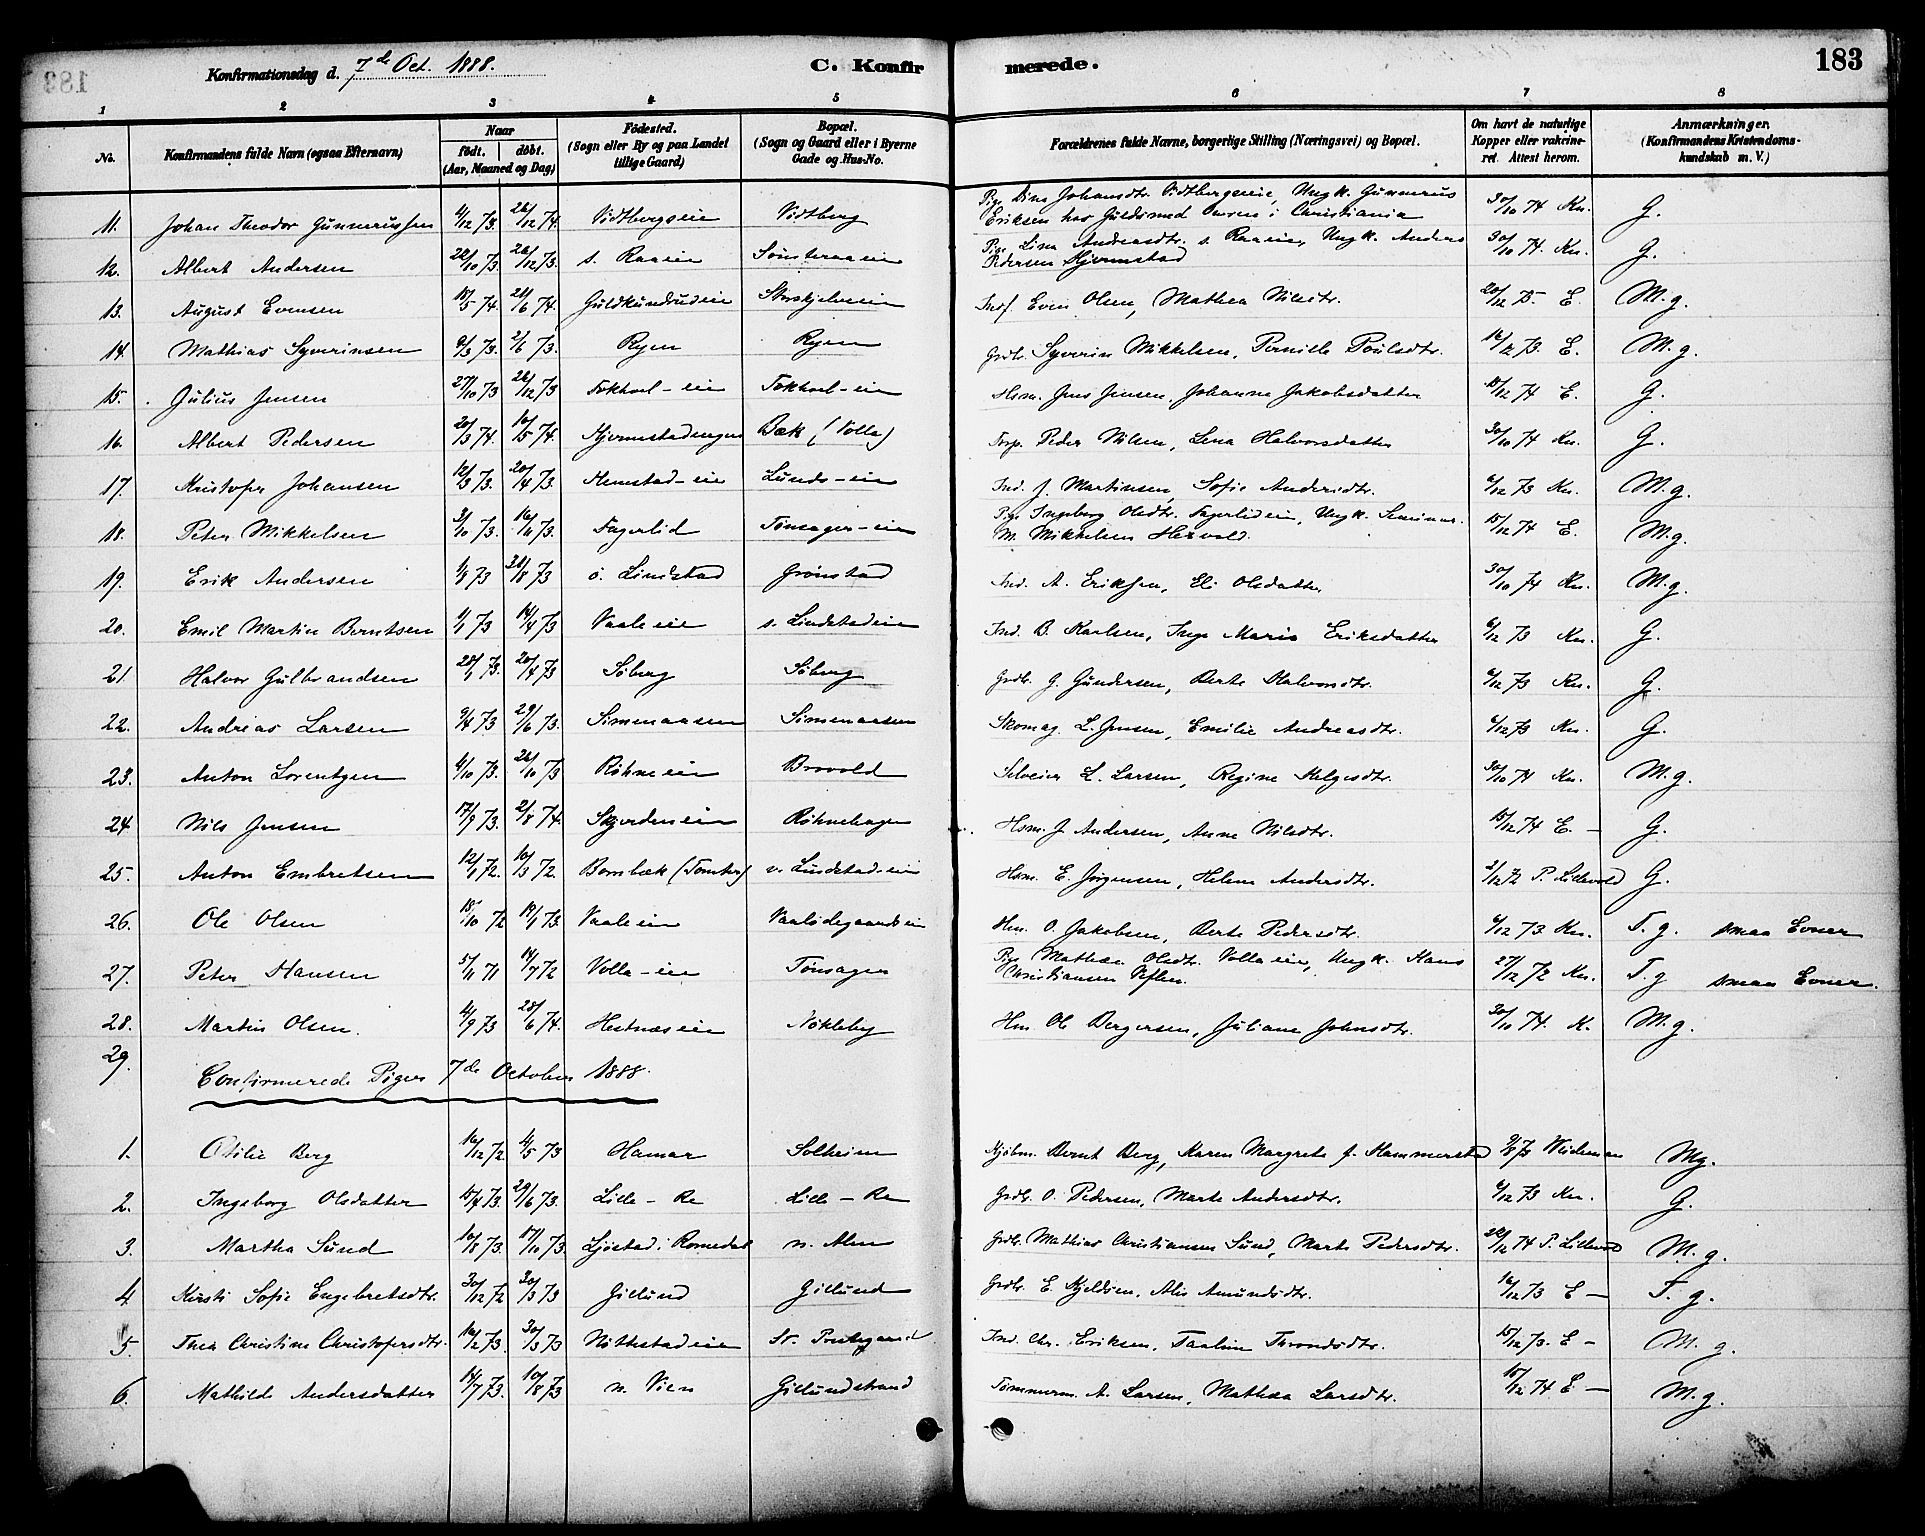 Konfirmationsdag d. 7de Oct. 1888. C. Konfirmerede. 183
1 2 3 4 5 6 7 8
No. Konfirmandens fulde Navn (ogsaa Efternavn) Naar født. døbt. (Aar, Maaned og Dag) Fødested. (Sogn eller By og paa Landet tillige Gaard) Bopæl. (Sogn og Gaard eller i Byerne Gade og Hus-No. Forældrenes fulde Navne, borgerlige Stilling (Næringsvei) og Bopæl. Om havt de naturlige Kopper eller vakcineret. Attest herom. Anmærkninger. (Konfirmandens Kristendomskundskab m. V.)
11. Johan Theodor Gunnerussen 4/12 73. 26/12 74. Vidtbergeie Vidtberg Pige Dina Johansdtr. Vidtbergeie, Ungk. Gunnerus Eriksen hos Guldsmed i Christiania 30/10 74 Kn. G.
12. Albert Andersen 22/10 73. 26/12 73. s. Raaeie Sønsteraaeie Pige Lina Andreasdtr. s. Raaeie, Ungk. Anders Pedersen Hjermstad 30/10 74. Kn. G.
13. August Evensen 18/5 74. 21/6 74. Guldkundrudeie Storskjelveeie Inds. Even Olsen, Mathea Nilsdtr. 20/12 75. E. M.g.
14. Mathias Syverinsen 9/3 73. 2/6 73. Ryen Ryen Grdbr. Syverin Mikkelsen, Pernille Poulsdtr. 16/12 73. E. M.g.
15. Julius Jensen 27/10 73 26/12 73 Tokhol-eie Tokhol-eie Hsm. Jens Jensen, Johanne Jakobsdatter 15/12 74 E. G.
16. Albert Pedersen 20/3 74. 10/5 74. Hjermstadengen Bæk (Volla) Torp. Peder Nilsen, Lena Halvorsdatter 30/10 74 Kn. G.
17. Kristofer Johansen 12/3 73. 20/4 73. Hemstad-eie Lunds-eie Ind. J. Martinsen, Sofie Andersdtr. 6/12 73 Kn. M.g.
18. Peter Mikkelsen 3/10 73. 16/11 73. Fagerlid Tønsager-eie Pige Ingeborg Olsdtr. Fagerlideie, Ungk. M. Mikkelsen 15/12 74 E. M.g.
19. Erik Andersen 1/8 73 31/8 73 ö. Lindstad Grønstad Ind. A. Eriksen, Eli Olsdatter 30/10 74 Kn. M.g.
20. Emil Martin Berntsen 1/1 73 14/4 73 Vaaleeie s. Lindstadeie Ind. B. Karlsen, Inge Marie Eriksdatter 6/12 73 Kn. G.
21. Halvor Gulbrandsen 28/1 73. 20/4 73 Søberg Søberg Grdb. G. Gundersen, Berte Halvorsdtr. 6/12 73 Kn. G.
22. Andreas Larsen 9/4 73 29/6 73. Simenaasen Simenaasen Skomag. L. Jensen, Emilie Andreasdtr. 6/12 73 Kn. G.
23. Anton Lorentzen 6/10 73. 26/10 73 Røhneeie Brovold Selveier L. Larsen, Regine Helgesdtr. 30/10 74 Kn. M.g.
24. Nils Jensen 17/9 73. 2/8 74. Skjerdeneie Røhnehagen Hsm. J. Andersen, Anne Nilsdtr. 15/12 74 E. — G.
25. Anton Embretsen 12/1 72. 10/3 72. Bornbæk (Tomter) v. Lindstad-eie Hsm. E. Jørgensen, Helene Andersdtr. 2/12 72 P. Lillevold G.
26. Ole Olsen 15/10 72 19/1 73. Vaaleeie Vaalødegaardseie Hm. O. Jakobsen, Berte Pedersdtr. 6/12 73 Kn. T.g. smaa Evner
27. Peter Hansen 5/11 71 14/7 72 Volla-eie Tønsager Pige Mathea Olsdtr. Vollaeie, Ungk. Hans Christiansen 27/12 72 Kn. T.g smaa Evner.
28. Martin Olsen. 4/9 73 28/6 74. Hestnæseie Nøkleby Hm. Ole Bergersen, Juliane Johnsdtr. 30/10 74. K. M.g.
29. Confirmerede Piger 7de October 1888.
1. Otilie Berg 16/12 72 4/5 73 Hamar Solheim Kjøbm. Bernt Berg, Karen Margrete f. Hammerstad 9/8 73 Mg.
2. Ingeborg Olsdatter 15/4 73. 29/6 73. Lille-Re Lille-Re Grdb. O. Pedersen, Marte Andersdtr. 6/12 73 Kn. G.
3. Martha Sund 10/8 73. 17/10 73. Ljøstad i Romedal n. Alm Grdb. Mathias Christiansen Sund, Marte Pedersdtr. 20/12 74 P. Lillevold M.g.
4. Kirsti Sofie Engebretsdtr. 30/12 72 30/3 73 Gillund Gillund Grdb. E. Kjeldsen, Alis Amundsdtr. 16/12 73 E — T.g.
5. Thea Christine Christofersdtr. 16/2 73. 30/3 73 Nøttestadeie St. Prestegaard Ind. Chr. Eriksen, Taaline Throndsdtr. 15/12 73. E — M.g.
6. Mathilde Andersdatter 14/7 73. 10/8 73 n. Vien Gillundstrand Tømmerm. A. Larsen, Mathea Larsdtr. 15/12 74 E — M.g.